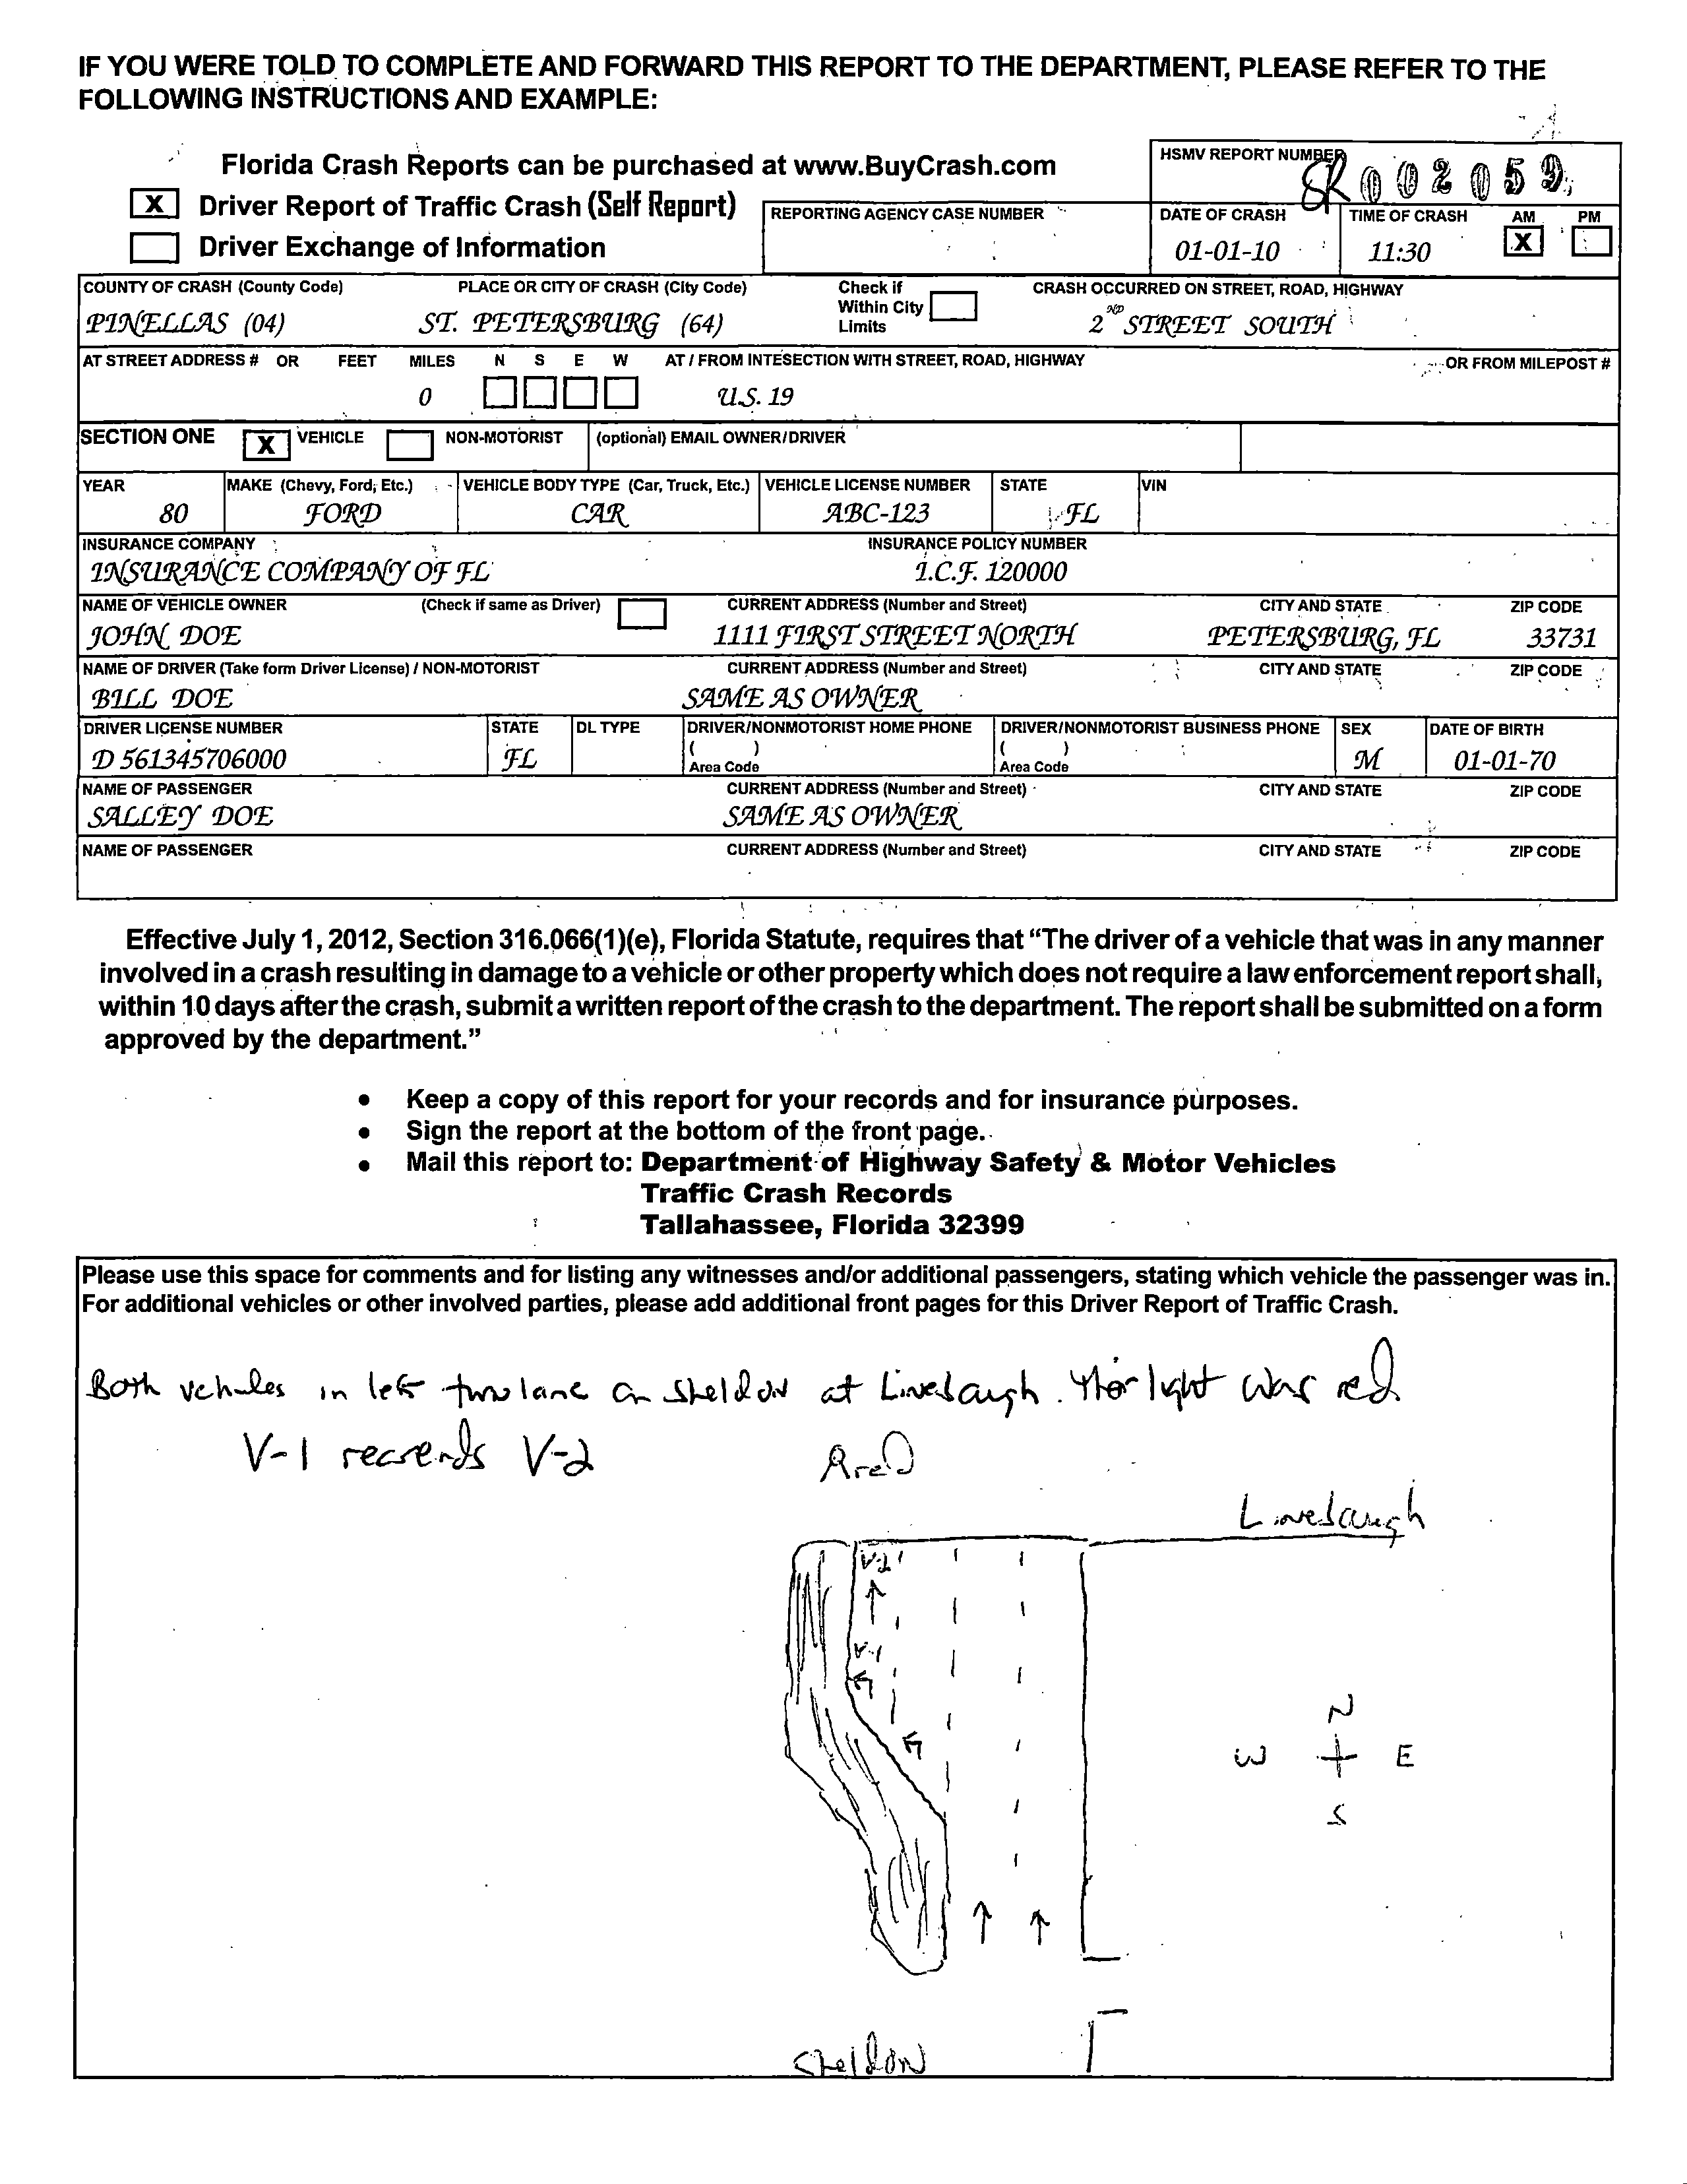 IF YOU WERE TOLD TO COMPLETE AND FORWARD THIS REPORT TO THE DEPARTMENT, PLEASE REFER TO THE
FOLLOWING INSTRUCTIONS AND EXAMPLE:
Florida Crash Reports can be purchased at www.BuyCrash.com
HSMV REPORT NUMBER SR 002059
X Driver Report of Traffic Crash (Self Report)
Driver Exchange of Information
REPORTING AGENCY CASE NUMBER
DATE OF CRASH TIME OF CRASH AM PM
01-01-10 11:30 X
COUNTY OF CRASH (County Code) PLACE OR CITY OF CRASH (City Code) Check if Within City Limits CRASH OCCURRED ON STREET, ROAD, HIGHWAY
PINELLAS (04) ST. PETERSBURG (64) 2ND STREET SOUTH
AT STREET ADDRESS # OR FEET MILES N S E W AT / FROM INTESECTION WITH STREET, ROAD, HIGHWAY OR FROM MILEPOST #
0 U.S. 19
SECTION ONE X VEHICLE NON-MOTORIST (optional) EMAIL OWNER/DRIVER
YEAR MAKE (Chevy, Ford, Etc.) VEHICLE BODY TYPE (Car, Truck, Etc.) VEHICLE LICENSE NUMBER STATE VIN
80 FORD CAR ABC-123 FL
INSURANCE COMPANY INSURANCE POLICY NUMBER
INSURANCE COMPANY OF FL I.C.F. 120000
NAME OF VEHICLE OWNER (Check if same as Driver) CURRENT ADDRESS (Number and Street) CITY AND STATE ZIP CODE
JOHN DOE 1111 FIRST STREET NORTH PETERSBURG, FL 33731
NAME OF DRIVER (Take form Driver License) / NON-MOTORIST CURRENT ADDRESS (Number and Street) CITY AND STATE ZIP CODE
BILL DOE SAME AS OWNER
DRIVER LICENSE NUMBER STATE DL TYPE DRIVER/NONMOTORIST HOME PHONE DRIVER/NONMOTORIST BUSINESS PHONE SEX DATE OF BIRTH
D 561345706000 FL ( ) Area Code ( ) Area Code M 01-01-70
NAME OF PASSENGER CURRENT ADDRESS (Number and Street) CITY AND STATE ZIP CODE
SALLEY DOE SAME AS OWNER
NAME OF PASSENGER CURRENT ADDRESS (Number and Street) CITY AND STATE ZIP CODE
Effective July 1, 2012, Section 316.066(1)(e), Florida Statute, requires that “The driver of a vehicle that was in any manner
involved in a crash resulting in damage to a vehicle or other property which does not require a law enforcement report shall,
within 10 days after the crash, submit a written report of the crash to the department. The report shall be submitted on a form
approved by the department.”
• Keep a copy of this report for your records and for insurance purposes.
• Sign the report at the bottom of the front page.
• Mail this report to: Department of Highway Safety & Motor Vehicles
Traffic Crash Records
Tallahassee, Florida 32399
Please use this space for comments and for listing any witnesses and/or additional passengers, stating which vehicle the passenger was in.
For additional vehicles or other involved parties, please add additional front pages for this Driver Report of Traffic Crash.
Both vehicles in left turn lane on sheldon at Linebaugh. light was red
V-1 rearends V-2
Linebaugh
V-2
V-1
N
W E
S
Sheldon